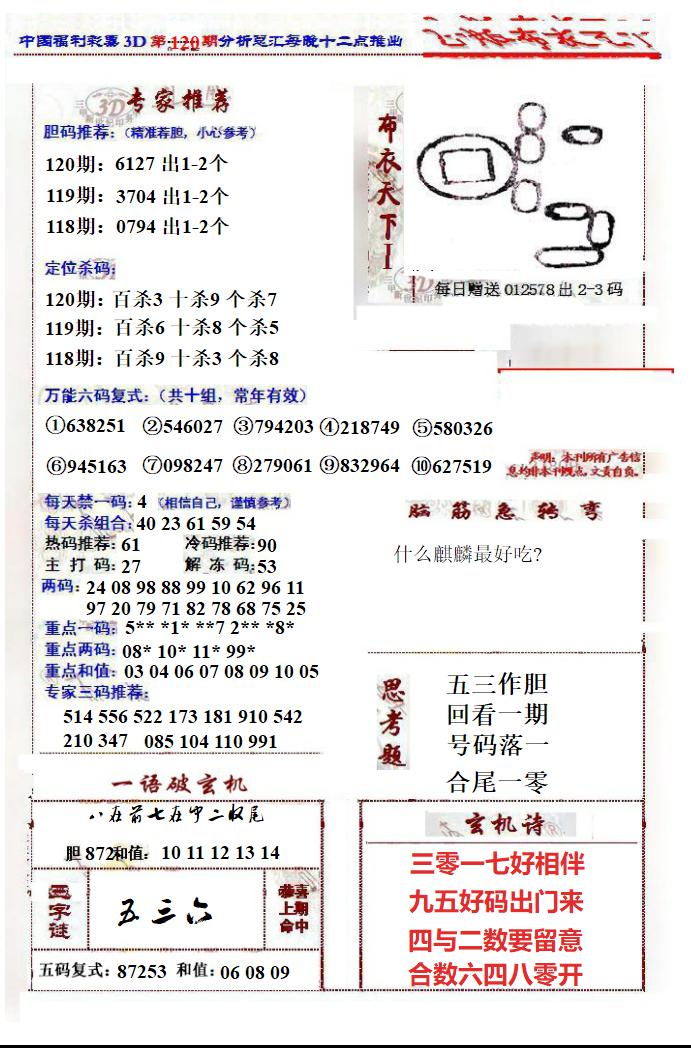 中国福利彩票3D 第:120期分析总汇每晚十二点推出
专家推荐
胆码推荐:（精准荐胆，小心参考）
120期：6127 出1-2个
119期：3704 出1-2个
118期：0794 出1-2个
定位杀码:
120期：百杀3 十杀9 个杀7
119期：百杀6 十杀8 个杀5
118期：百杀9 十杀3 个杀8
布衣天下I
每日赠送 012578 出 2-3 码
万能六码复式:（共十组，常年有效）
①638251 ②546027 ③794203 ④218749 ⑤580326
⑥945163 ⑦098247 ⑧279061 ⑨832964 ⑩627519
声明：本刊所有广告信
息均非本刊观点,文责自负。
每天禁一码: 4 （相信自己，谨慎参考）
每天杀组合: 40 23 61 59 54
热码推荐: 61 冷码推荐: 90
主 打 码: 27 解 冻 码: 53
两码: 24 08 98 88 99 10 62 96 11
97 20 79 71 82 78 68 75 25
重点一码: 5** *1* **7 2** *8*
重点两码: 08* 10* 11* 99*
重点和值: 03 04 06 07 08 09 10 05
专家三码推荐:
514 556 522 173 181 910 542
210 347 085 104 110 991
脑筋急转弯
什么麒麟最好吃?
思考题
五三作胆
回看一期
号码落一
合尾一零
一语破玄机
八在前七在中二收尾
胆 872和值: 10 11 12 13 14
画字谜
五三六
恭喜
上期
命中
五码复式: 87253 和值: 06 08 09
玄机诗
三零一七好相伴
九五好码出门来
四与二数要留意
合数六四八零开